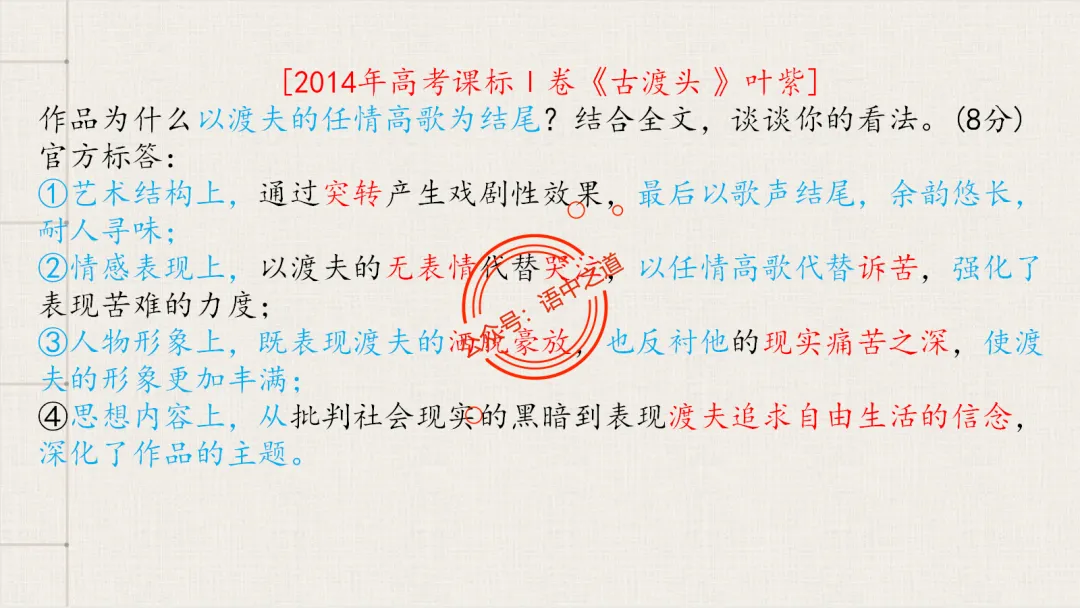 [2014年高考课标Ⅰ卷《古渡头 》叶紫]
作品为什么以渡夫的任情高歌为结尾?结合全文，谈谈你的看法。(8分)
官方标答：
①艺术结构上，通过突转产生戏剧性效果，最后以歌声结尾，余韵悠长，
耐人寻味；
②情感表现上，以渡夫的无表情代替哭泣，以任情高歌代替诉苦，强化了
表现苦难的力度；
③人物形象上，既表现渡夫的洒脱豪放，也反衬他的现实痛苦之深，使渡
夫的形象更加丰满；
④思想内容上，从批判社会现实的黑暗到表现渡夫追求自由生活的信念，
深化了作品的主题。
公众号：语中之道